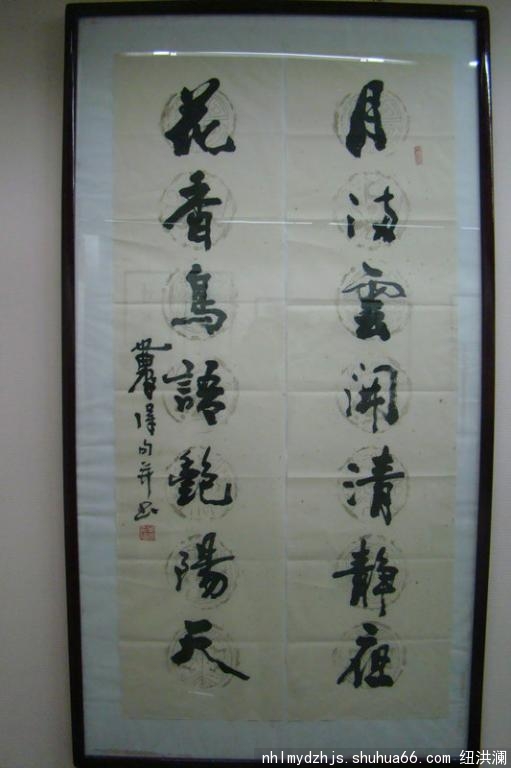 月雲開清静夜
花香鳥語艷陽天
句并书
nhlmydzhjs.shuhua66.com @ 纽洪澜